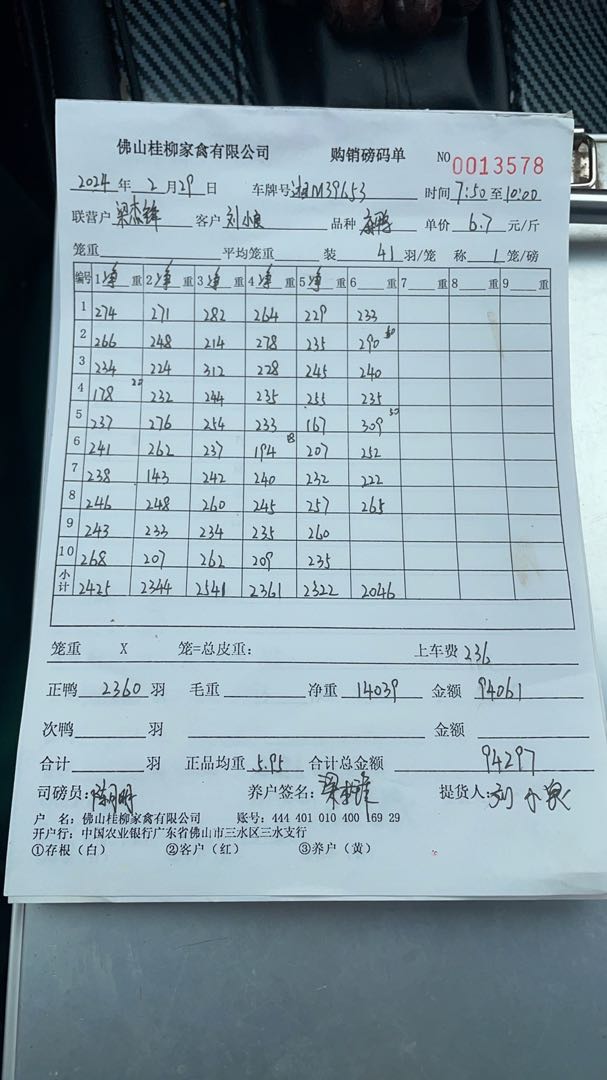 佛山桂柳家禽有限公司 购销磅码单 NO 0013578
2024年 2月29日 车牌号 湘M39653 时间 7:50至10:00
联营户 梁杰锋 客户 刘小泉 品种 单价 6.7 元/斤
笼重 平均笼重 装 41 羽/笼 称 1 笼/磅
编号 1净重 2净重 3净重 4净重 5净重 6 重 7 重 8 重 9 重
1 274 271 282 264 229 233
2 266 248 214 278 235 290
3 234 224 312 228 245 240
4 178 20 232 244 235 255 235
5 237 276 254 233 167 309 50
6 241 262 237 194 18 207 252
7 238 143 242 240 232 222
8 246 248 260 245 257 265
9 243 233 234 235 260
10 268 207 262 209 235
小计 2425 2344 2541 2361 2322 2046
笼重 X 笼=总皮重: 上车费 236
正鸭 2360 羽 毛重 净重 14039 金额 94061
次鸭 羽 金额
合计 羽 正品均重 5.95 合计总金额 94297
司磅员: 养户签名: 梁杰锋 提货人: 刘小泉
户 名: 佛山桂柳家禽有限公司 账号: 444 401 010 400 169 29
开户行: 中国农业银行广东省佛山市三水区三水支行
①存根(白) ②客户(红) ③养户(黄)